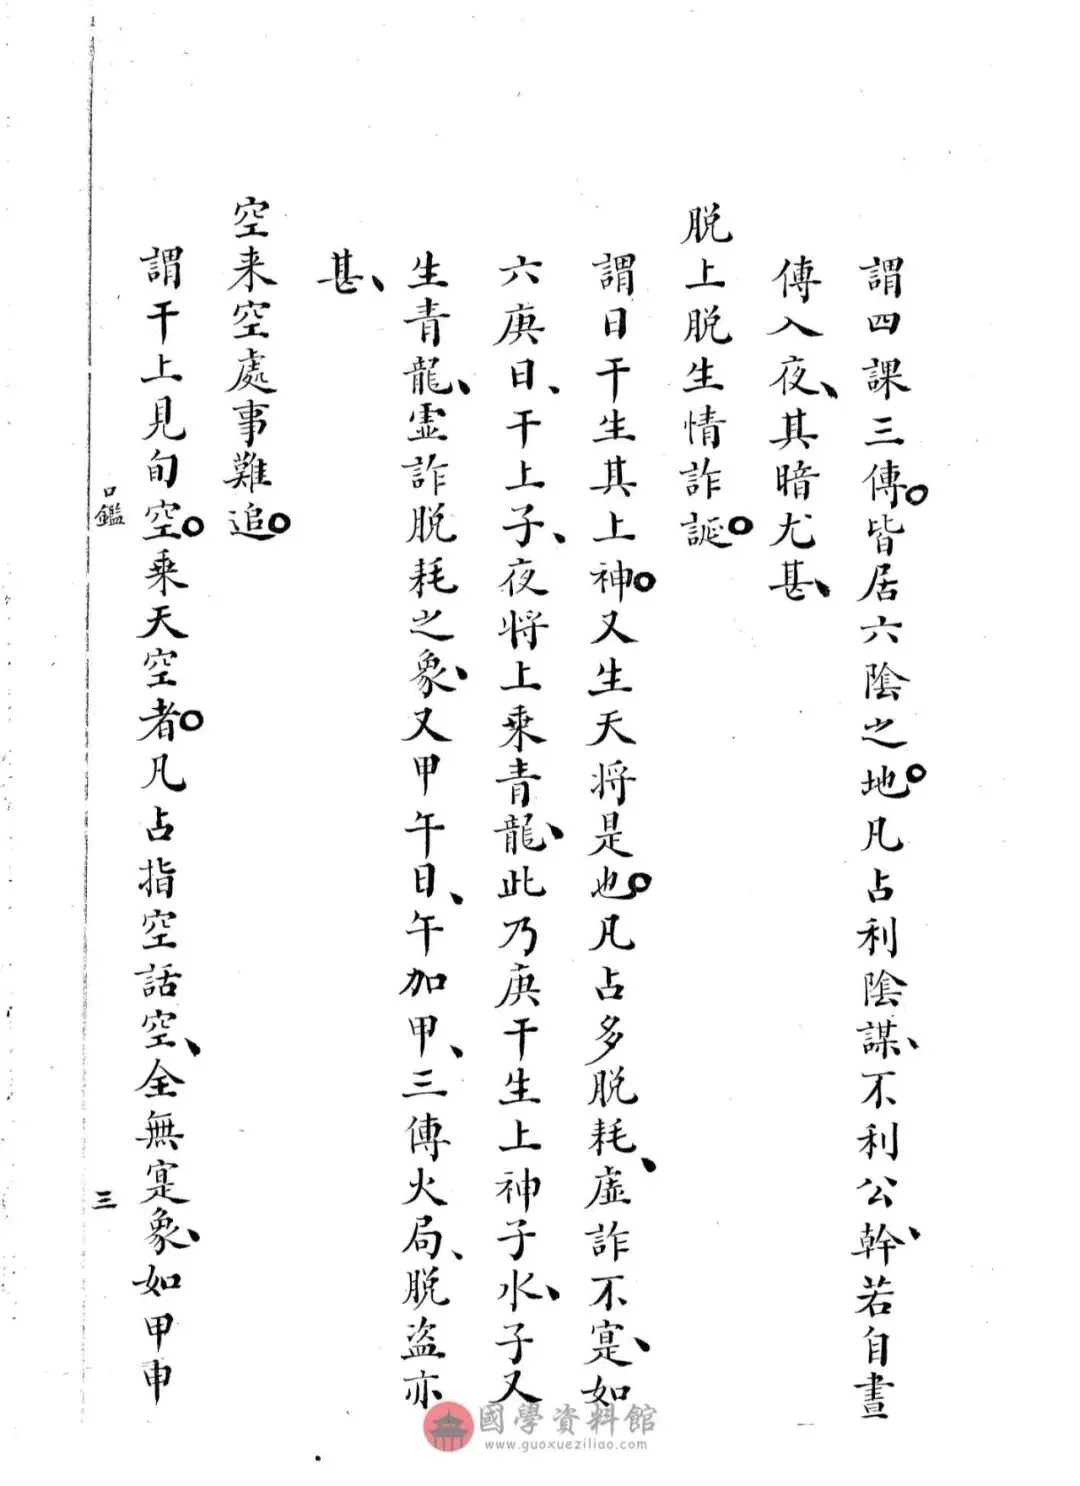 謂四課三傳。皆居六陰之地。凡占利陰謀、不利公幹、若自晝
傳入夜、其暗尤甚、
脱上脱生情詐誕。
謂日干生其上神。又生天将是也。凡占多脱耗、虛詐不寔、如
六庚日、干上子、夜将上乗青龍、此乃庚干生上神子水、子又
生青龍、虛詐脱耗之象、又甲午日、午加甲、三傳火局、脱盗亦
甚、
空来空處事難追。
謂干上見旬空。乗天空者。凡占指空話空、全無寔象、如甲申
口鑑
三
國學資料館
www.guoxueziliao.com